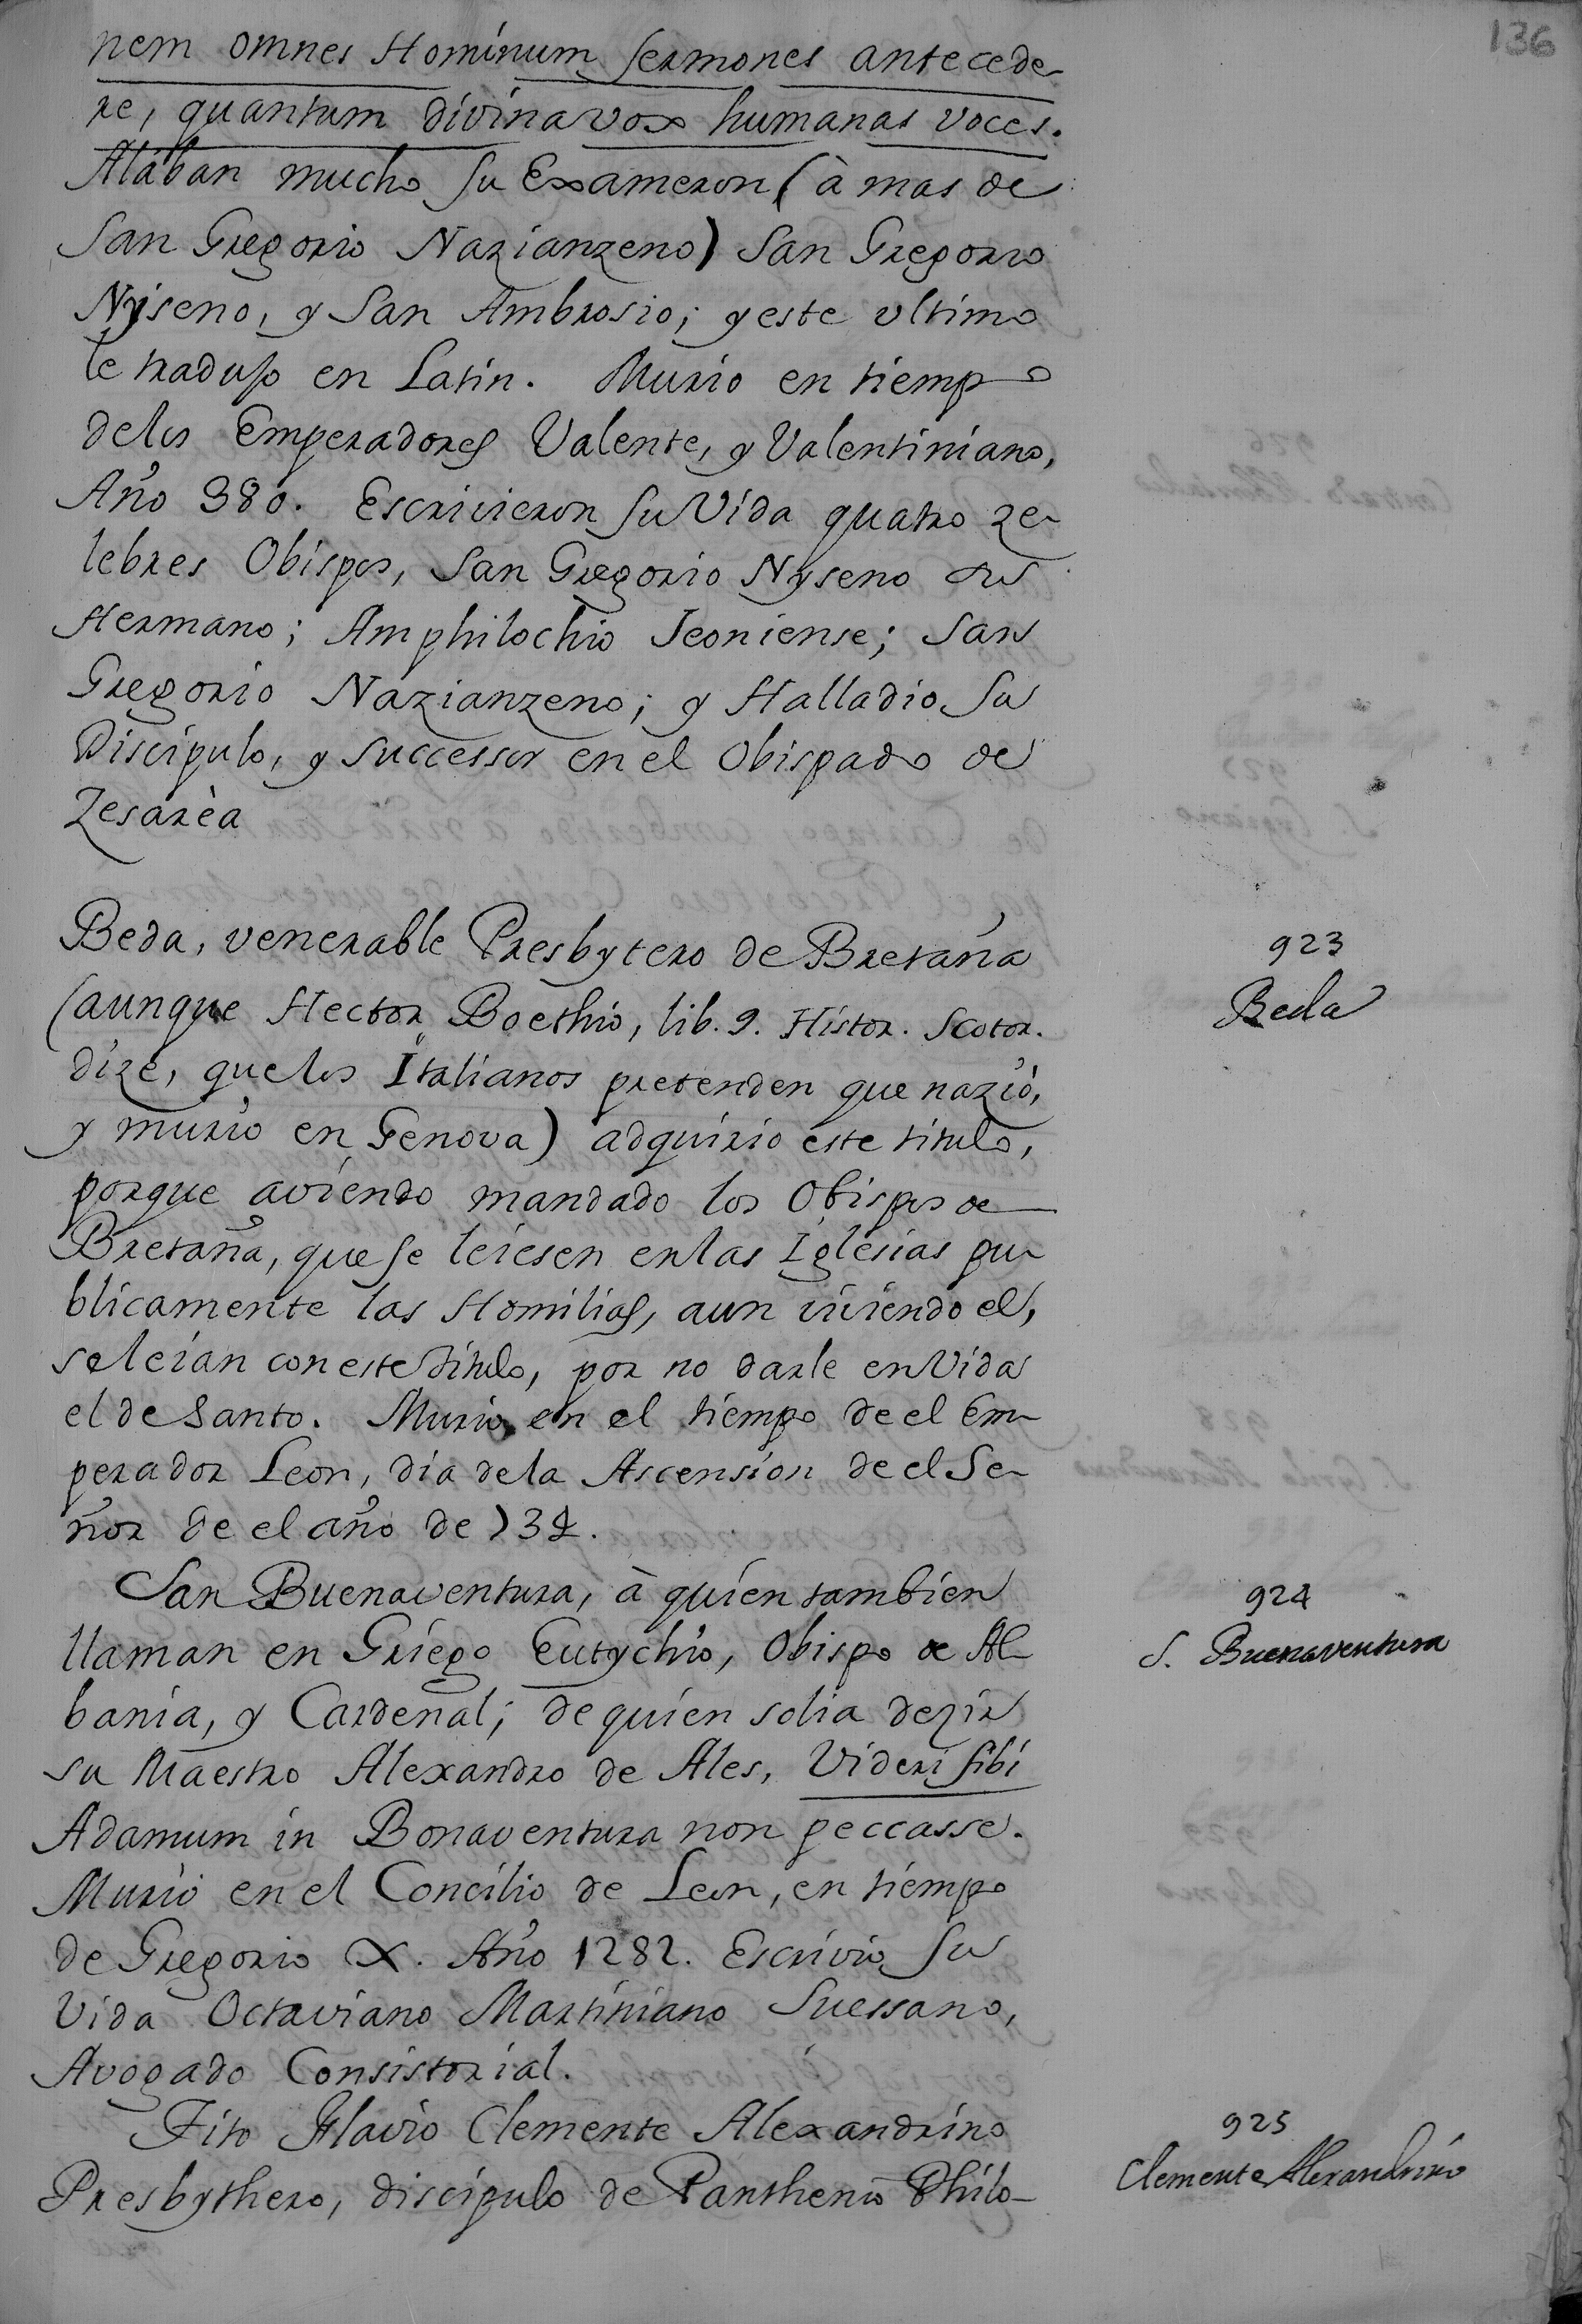 136
nem omnes Hominum sermones antecede-
re, quantum divina vox humanas voces.
Alàban mucho su Exameron (à mas de
San Gregorio Nazianzeno) San Gregorio
Nyseno, y San Ambrosio; y este ultimo
le traduso en Latin. Murio en tiempo
delos Emperadores Valente, y Valentiniano,
Año 380. Escrivieron su Vida quatro ze-
lebres Obispos, San Gregorio Nyseno su
Hermano; Amphilochio Jconiense; San
Gregorio Nazianzeno; y Halladio su
Discipulo, y successor en el Obispado de
Zesarèa
Beda, venerable Presbytero de Bretaña
(aunque Hector Boethio, lib. 9. Histor. Scotor.
dize, que los Italianos pretenden que naziò,
y murio en Genova) adquirio este titulo,
porque aviendo mandado los Obispos de
Bretaña, que se leiesen en las Iglesias pu-
blicamente las Homilias, aun viviendo el,
se leian con este titulo, por no darle en Vida
el de Santo. Murio en el tiempo de el Em-
perador Leon, dia de la Ascension de el Se-
ñor de el año de 734.
923
Beda
San Buenaventura, à quien tambien
llaman en Griego Eutychio, Obispo de Al-
bania, y Cardenal; de quien solia dezir
su Maestro Alexandro de Ales, Videri sibi
Adamum in Bonaventura non peccasse.
Murio en el Concilio de Leon, en tiempo
de Gregorio X. Año 1282. Escrivio su
Vida Octaviano Martiniano Suessano,
Avogado Consistorial.
924
S. Buenaventura
Tito Flavio Clemente Alexandrino
Presbythero, discipulo de Panthenio Philo-
925
Clemente Alexandrino